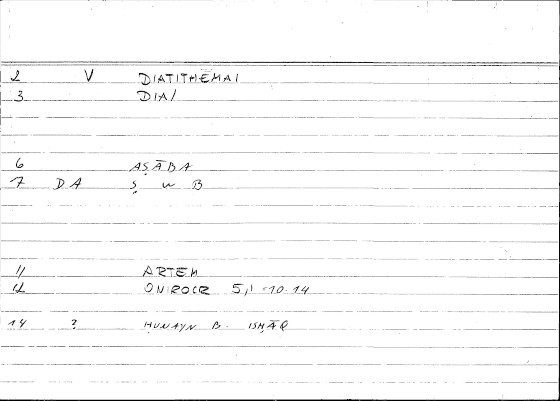 2 V DIATITHEMAI
3 DIA/
6 AṢĀBA
7 DA Ṣ W B
11 ARTEM
12 ONIROCR 5,1 -10.14
14 ? ḤUNAYN B. ISḤĀQ